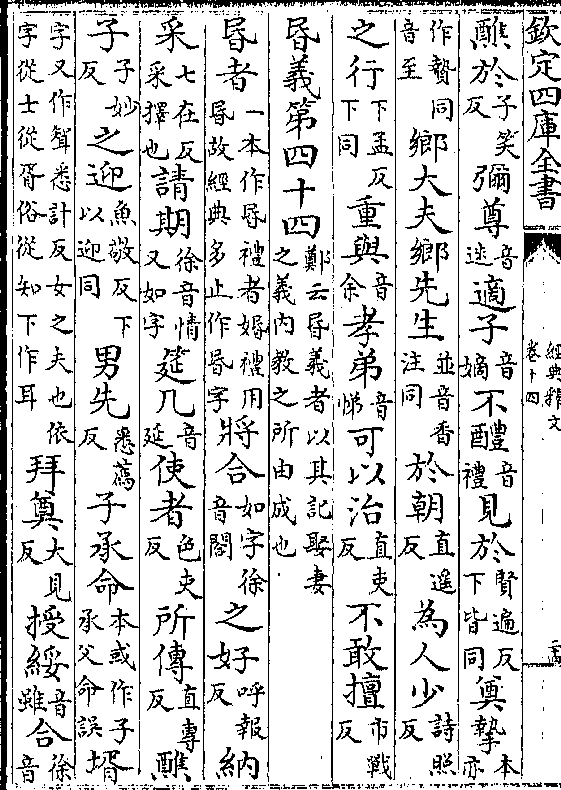 欽定四庫全書
經典釋文
卷十四
醮於子笑反彌尊音迷適子音嫡不醴音禮見於賢遍反下皆同奠摯本亦
作贄同音至鄉大夫鄉先生並音香注同於朝直遥反為人少詩照反
之行下孟反下同重與音余孝弟音悌可以治直吏反不敢擅市戰反
昏義第四十四鄭云昏義者以其記娶妻之義内教之所由成也
昏者一本作昏禮者婚禮用昏故經典多止作昏字將合如字徐音閤之好呼報反納
采七在反采擇也請期徐音情又如字筵几音延使者色吏反所傳直專反醮
子子妙反之迎魚敬反下以迎同男先悉薦反子承命本或作子承父命誤壻
字又作聟悉計反女之夫也依字從士從胥俗從知下作耳拜奠大見反授綏音雖合徐音